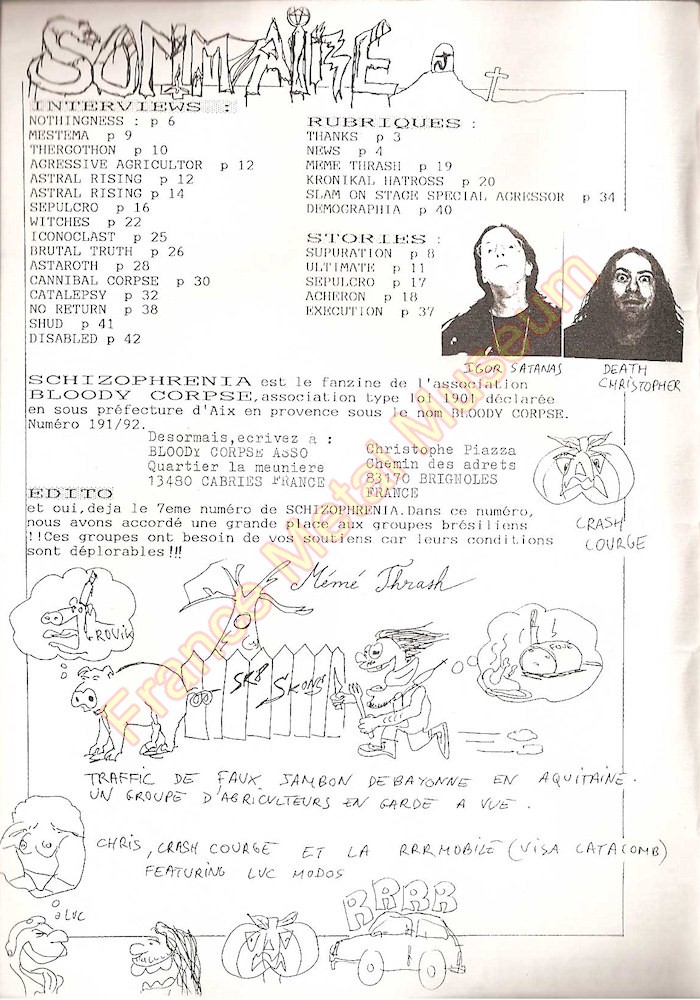 SOMMAIRE
INTERVIEWS :
NOTHINGNESS : p 6
MESTEMA  p 9
THERGOTHON  p 10
AGRESSIVE AGRICULTOR  p 12
ASTRAL RISING  p 12
ASTRAL RISING p 14
SEPULCRO  p 16
WITCHES  p 22
ICONOCLAST  p 25
BRUTAL TRUTH  p 26
ASTAROTH  p 28
CANNIBAL CORPSE  p 30
CATALEPSY  p 32
NO RETURN  p 38
SHUD  p 41
DISABLED p 42
RUBRIQUES :
THANKS  p 3
NEWS  p 4
MEME THRASH  p 19
KRONIKAL HATROSS  p 20
SLAM ON STAGE SPECIAL AGRESSOR  p 34
DEMOGRAPHIA  p 40
STORIES :
SUPURATION  p 8
ULTIMATE  p 11
SEPULCRO  p 17
ACHERON  p 18
EXECUTION  p 37
IGOR SATANAS
DEATH CHRISTOPHER
SCHIZOPHRENIA est le fanzine de l'association
BLOODY CORPSE,association type loi 1901 déclarée
en sous préfecture d'Aix en provence sous le nom BLOODY CORPSE.
Numéro 191/92.
Desormais,ecrivez a :
BLOODY CORPSE ASSO
Quartier la meuniere
13480 CABRIES FRANCE
Christophe Piazza
Chemin des adrets
83170 BRIGNOLES
FRANCE
CRASH COURGE
EDITO
et oui,deja le 7eme numéro de SCHIZOPHRENIA.Dans ce numéro,
nous avons accordé une grande place aux groupes brésiliens
!!Ces groupes ont besoin de vos soutiens car leurs conditions
sont déplorables!!!
Mémé Thrash
SK8 SKONS
TRAFFIC DE FAUX JAMBON DE BAYONNE EN AQUITAINE.
UN GROUPE D'AGRICULTEURS EN GARDE A VUE.
CHRIS, CRASH COURGE ET LA RRRMOBILE (VISA CATACOMB)
FEATURING LUC MODOS
LUC
RRRR
France Metal Museum